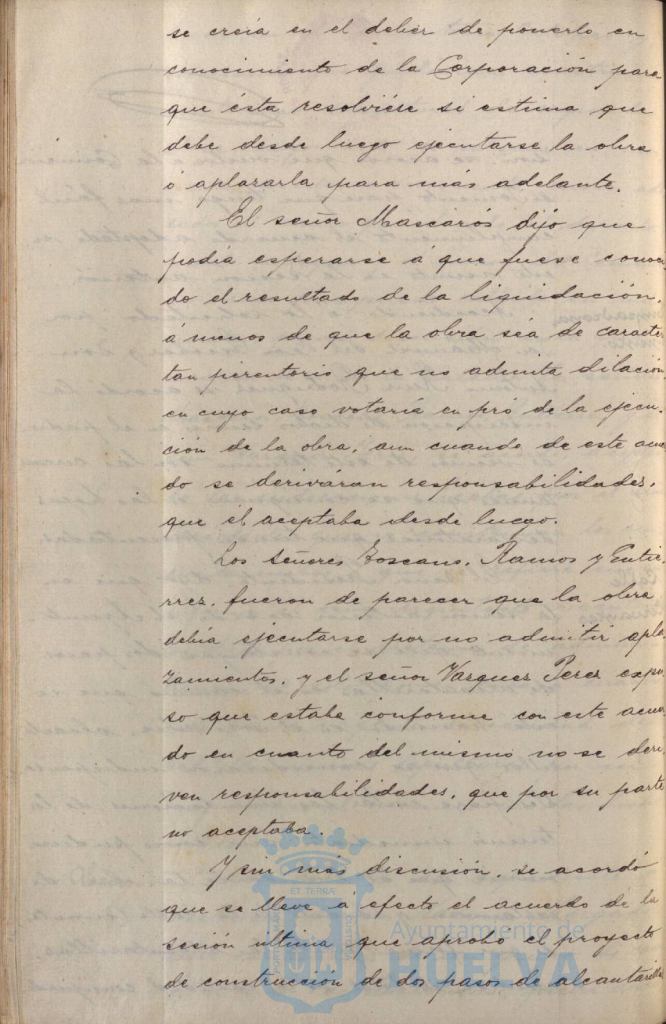 se creía en el deber de ponerlo en
conocimiento de la Corporación para
que ésta resolviése si estima que
debe desde luego ejecutarse la obra
ó aplazarla para más adelante.
El señor Mascarós dijo que
podia esperarse á que fuese conoci
do el resultado de la liquidación,
á menos de que la obra séa de caracter
tan perentorio que no admita dilación
en cuyo caso votaría en pró de la ejecu-
ción de la obra, aun cuando de este acuer
do se deriváran responsabilidades,
que él aceptaba desde luego.
Los señores Toscano, Ramos y Gutie-
rrez, fueron de parecer que la obra
debía ejecutarse por no admitir apla-
zamientos, y el señor Vazquez Perez expu-
so que estaba conforme con este acuer-
do en cuanto del mismo no se deri
ven responsabilidades, que por su parte
no aceptaba.
Y sin más discusión, se acordó
que se lleve á efecto el acuerdo de la
sesión última que aprobó el proyecto
de construcción de dos pasos de alcantarilla
Ayuntamiento de
HUELVA
ET TERRÆ